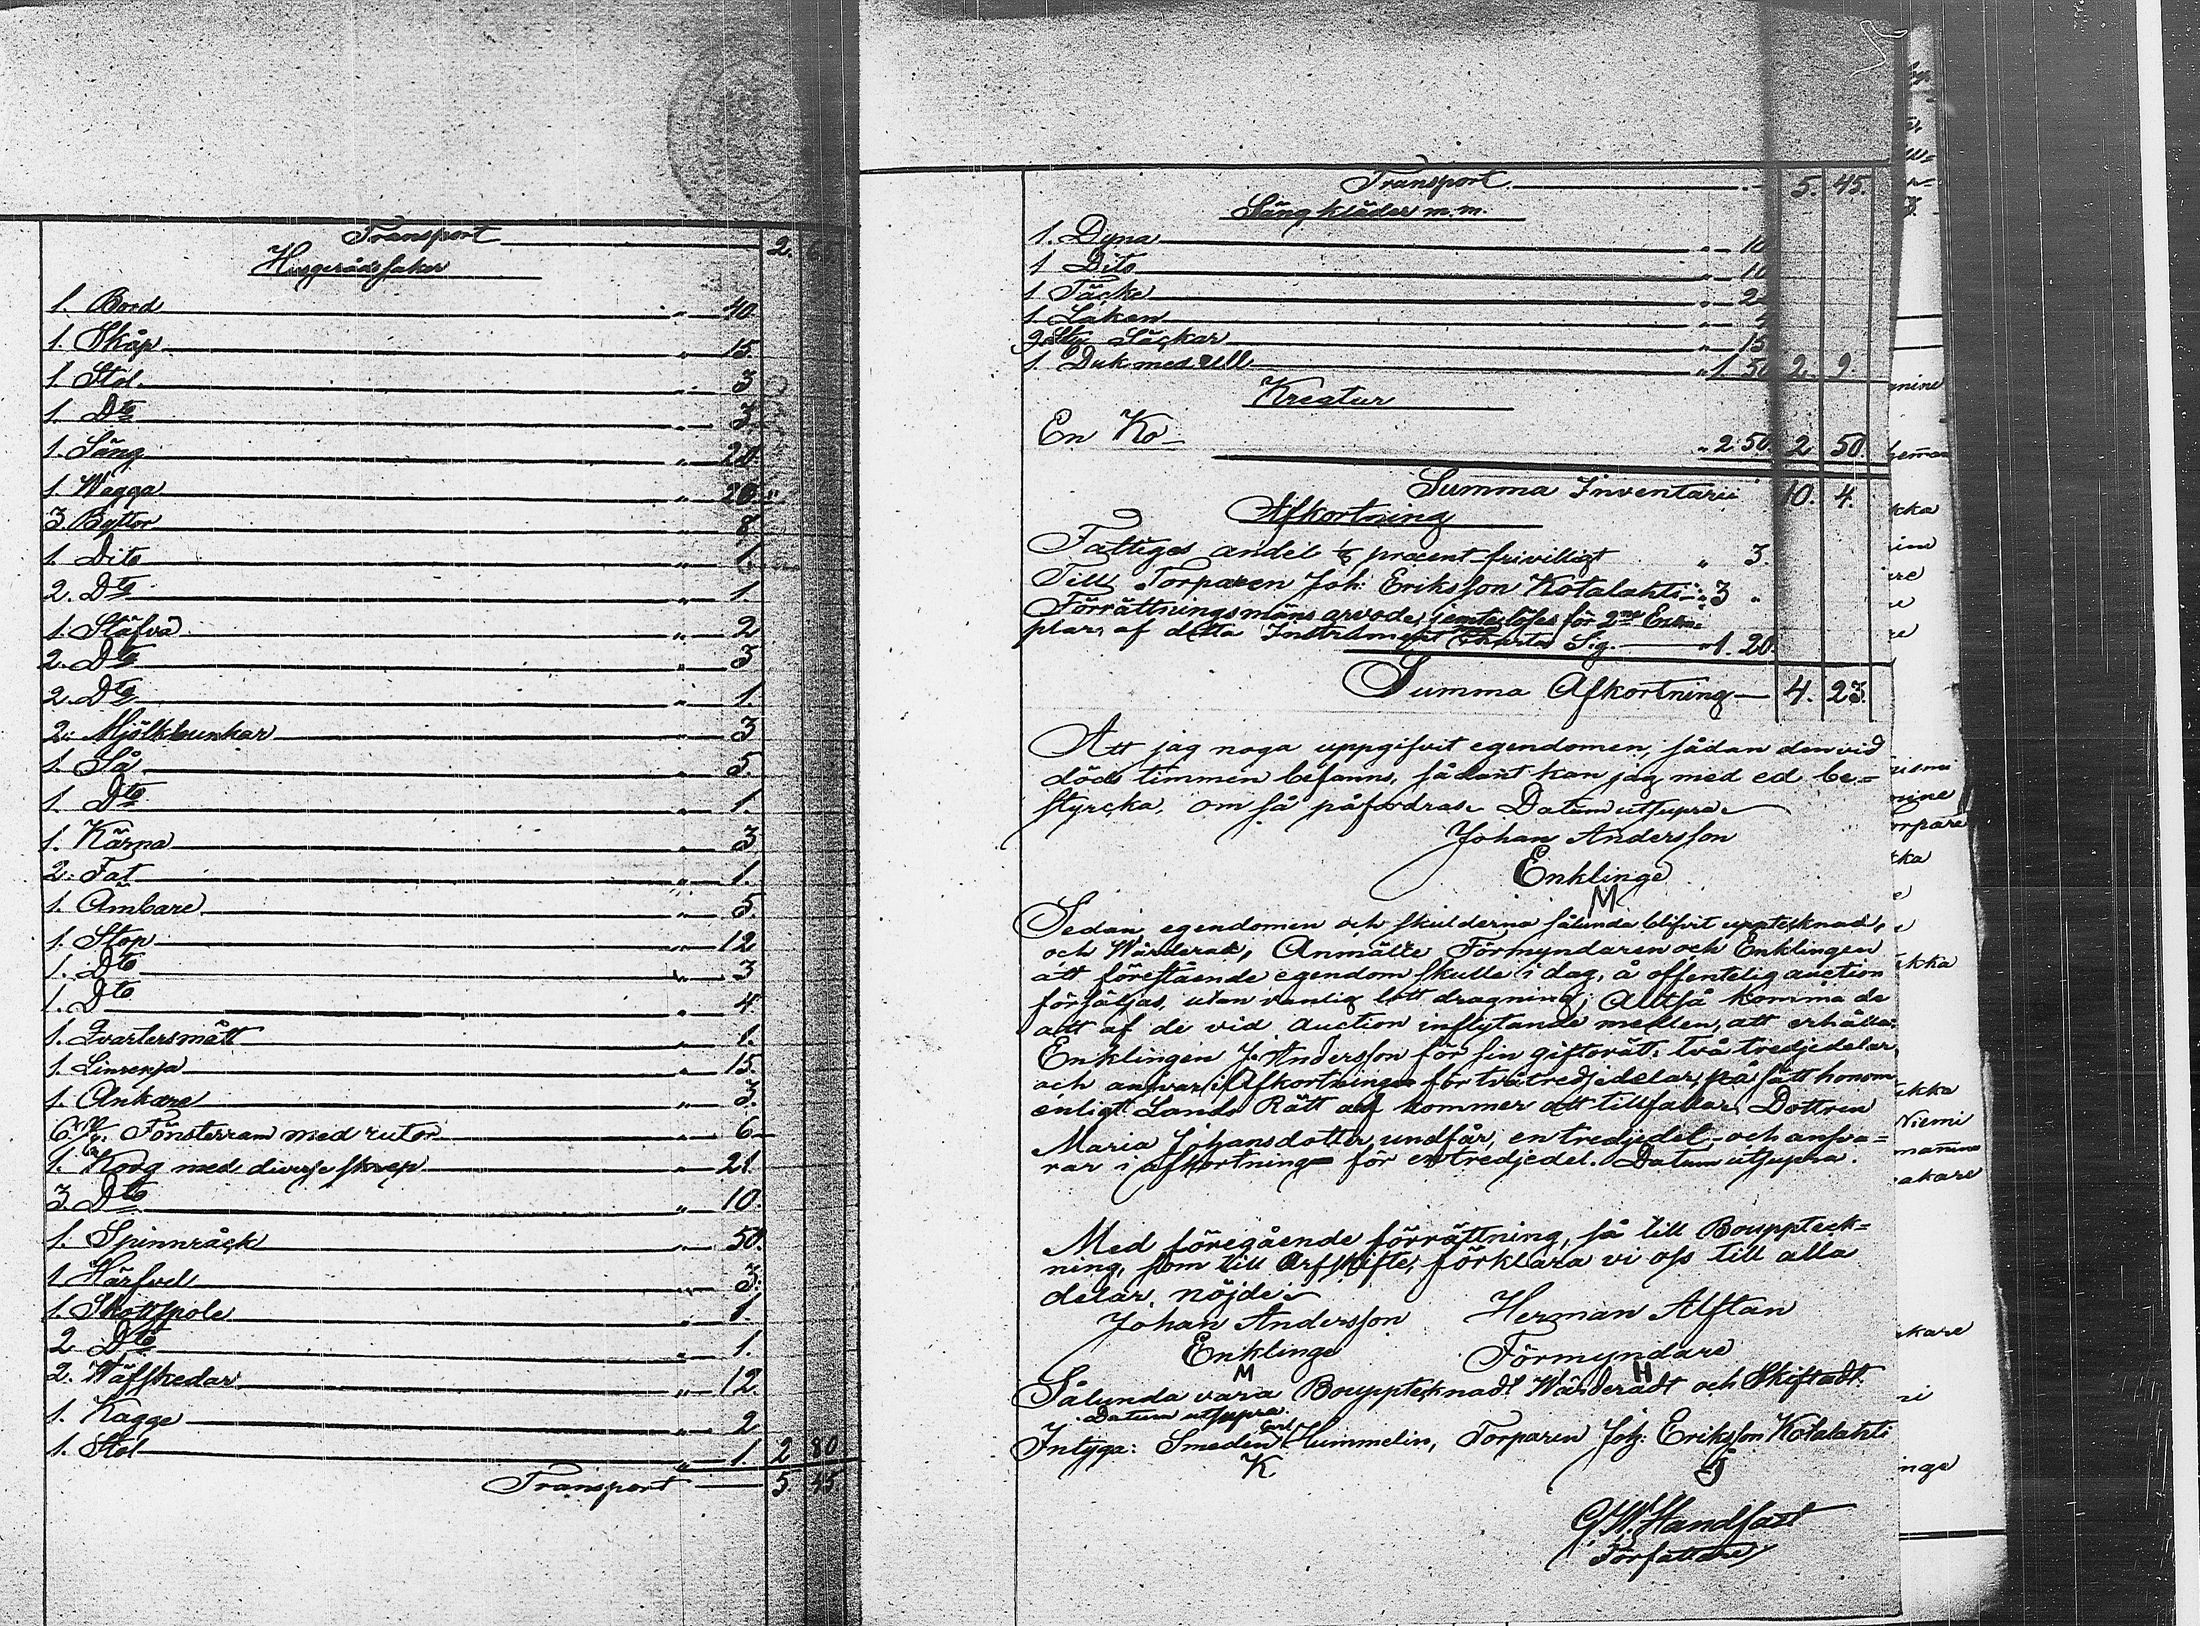 Transport 2. 65
Husgerådssaker
1. Bord " 40.
1. Skåp " 15
1. Stol " 3
1. Dto " 3.
1. Säng " 20
1. Wagga " 20.
3. Byttor " 8
1. Dito " 1.
2. Dto " 1.
1. Stäfva " 2
2. Dto " 3
2. Dto " 1.
2. Mjölkbunkar " 3
1. Så " 5.
1. Dto " 1.
1. Kärna " 3
2. Fat " 1.
1. Ämbare " 5
1. Stop " 12
1. Dto " 3
1. Dto " 4.
1. Qvartersmått " 1.
1. " 15.
1. Ankare " 3.
6 st. Fönsterram med rutor " 6
1. Korg med diverse skrep " 21.
3 Dto " 10.
1. Spinnråck " 50.
1 Härfvel " 3.
1. Skottspole " 1.
2 Dto " 1.
2. Wäfskedar " 12.
1. Kagge " 2
1. Stol " 1. 2 80
Transport 5 45
Transport 5. 45.
Sängkläder m.m.
1. Dyna " 10
1 Dito " 10
1 Täcke " 20
1. Lakan "
3 Säckar " 15
1. Duk med ull " 1 50 2. 9.
Kreatur
En Ko " 2 50. 2 50.
Summa Inventarii 10. 4.
Afkortning
Fattiges andel procent frivilligt " 3.
Till Torparen Joh: Eriksson Kotalahti " 3 "
Förrättningsmäns arvode, jemte lösen för 2ne Exem=
plar, af detta Instrument Charta Sig. " 1. 20.
Summa Afkortning 4. 23.
Att jag noga uppgifvit egendomen, sådan den vid
döds timmen befanns, sådant kan jag med ed be=
styrcka, om så påfordras. Datum utsupra
Johan Andersson
Enklinge
M
Sedan egendomen och skulderna sålunda blifvit uppteknad,
och Wärderad, Anmälte Förmyndaren och Enklingen
att förestående egendom skulle i dag, å offentelig auction
försäljas, utan vanlig lott dragning; Alltså komma de
att af de vid Auction inflytande medlen, att erhålla:
Enklingen J. Andersson för sin giftorätt två tredjedelar,
och ansvar i Afkortningen för två tredjedelar, på sätt honom
enligt Lands Rätt af kommer att tillfalla; Dottren
Maria Johansdotter, undfår, en tredjedel, och ansva=
rar i afkortning för en tredjedel. Datum utsupra.
Med föregående förrättning, så till Bouppteck=
ning, som till Arfskifte, förklara vi oss till alla
delar nöjde
Johan Andersson Herman Alftan
Enklinge Förmyndare
M H
Sålunda vara Boupptecknadt Wärderadt och Skiftadt.
Datum utsupra.
Intyga: Smeden Carl Hummelin, Torparen Joh: Eriksson Kotalahti
K
G W Handfast
Författare